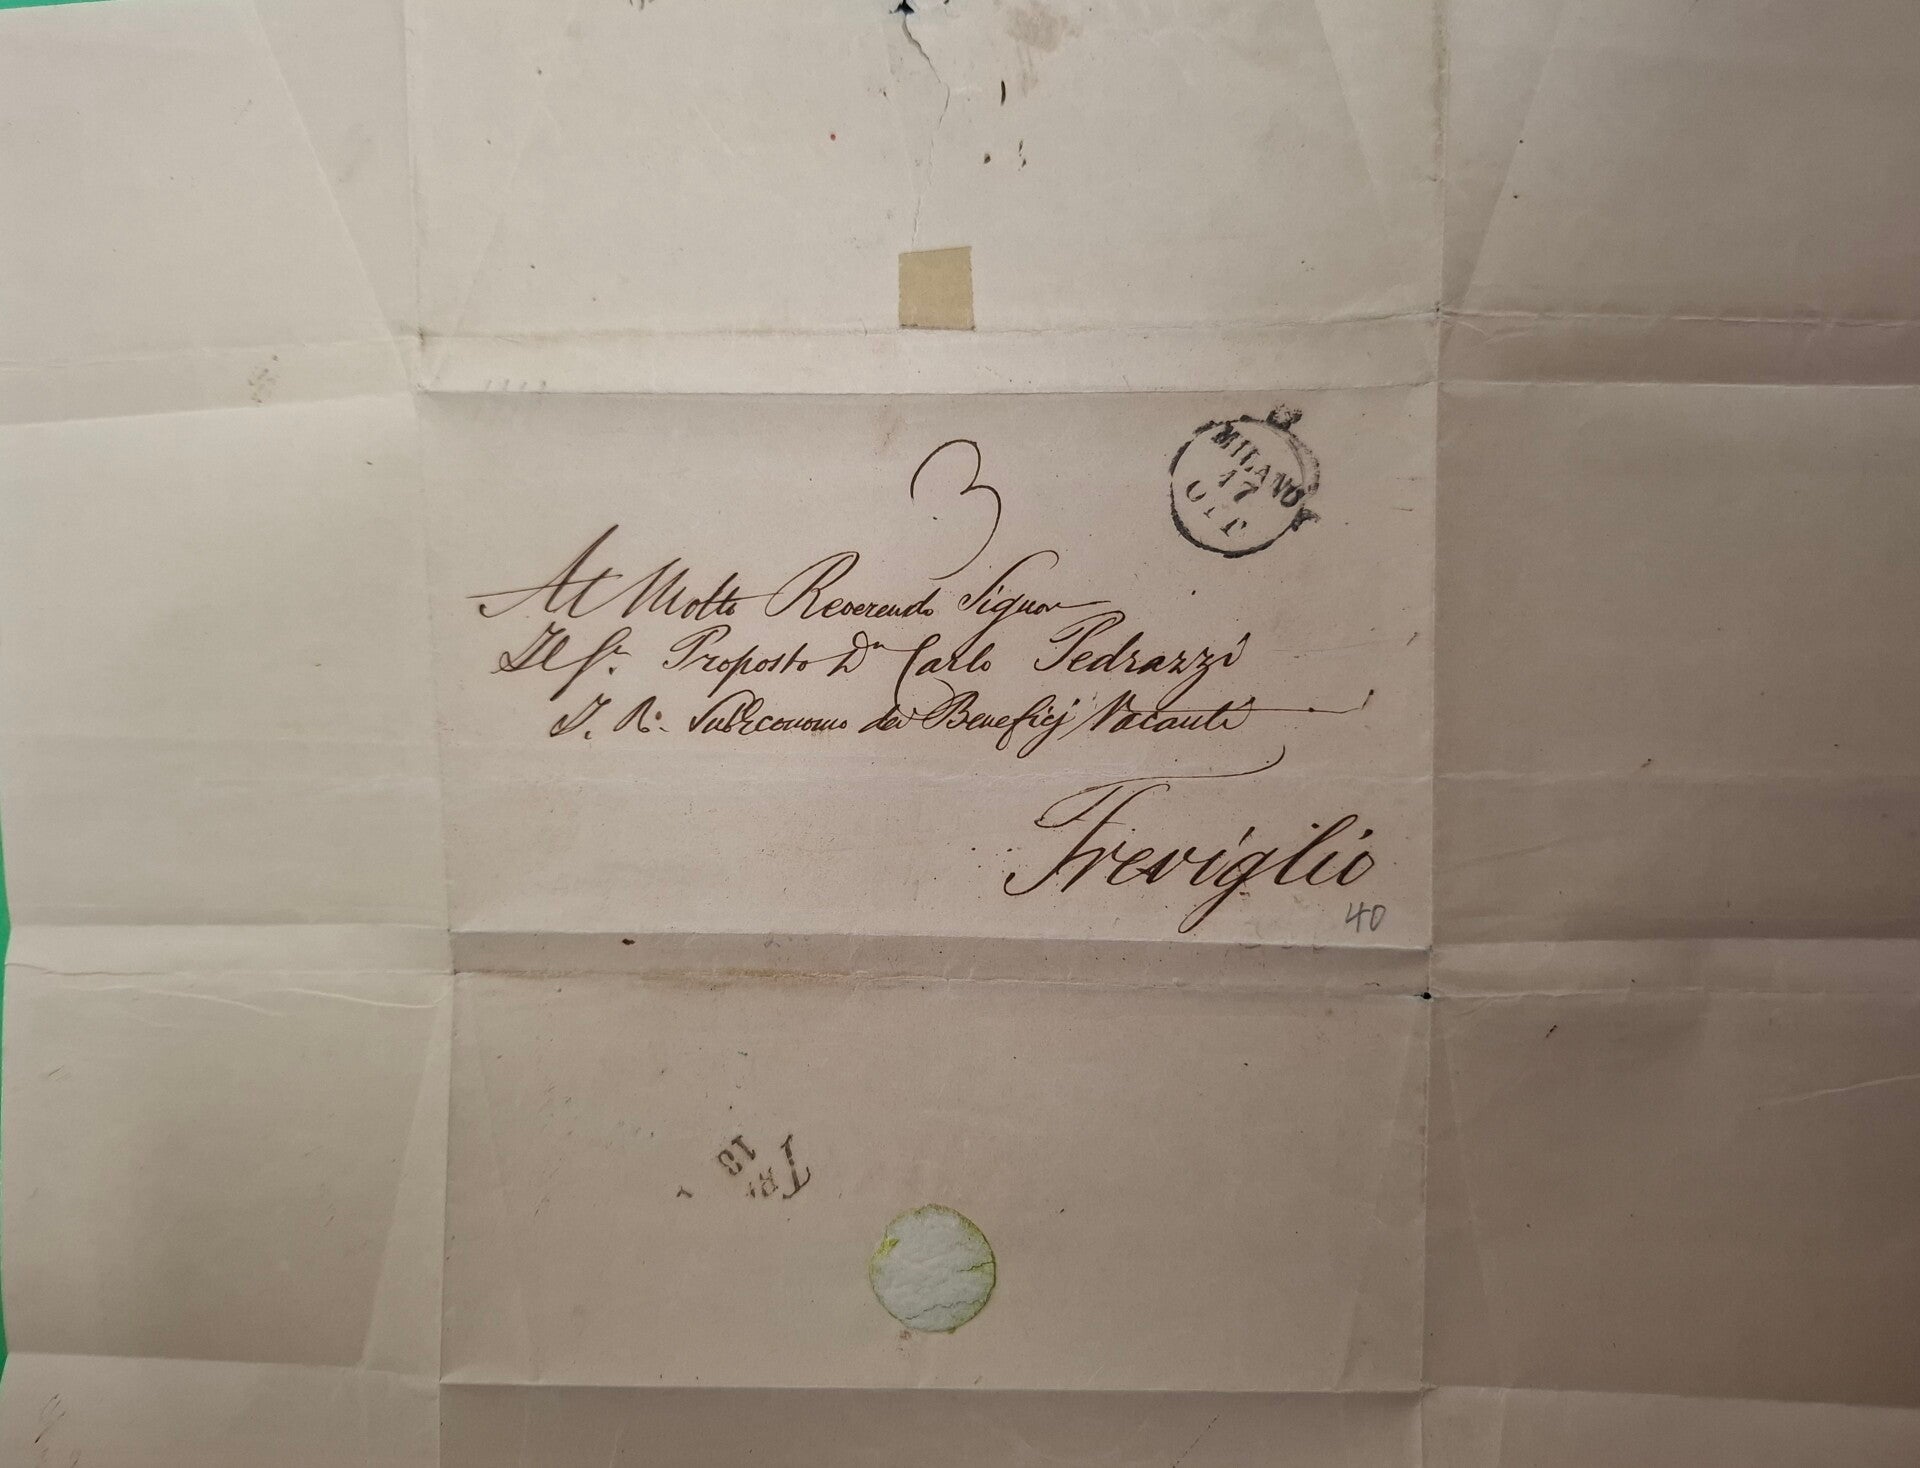 MILANO
17
OTT
3
Al Molto Reverendo Signor
Il Sr. Proposto Dn Carlo Pedrazzi
I. R. SubEconomo dei Beneficj Vacanti
Treviglio
40
TR
18